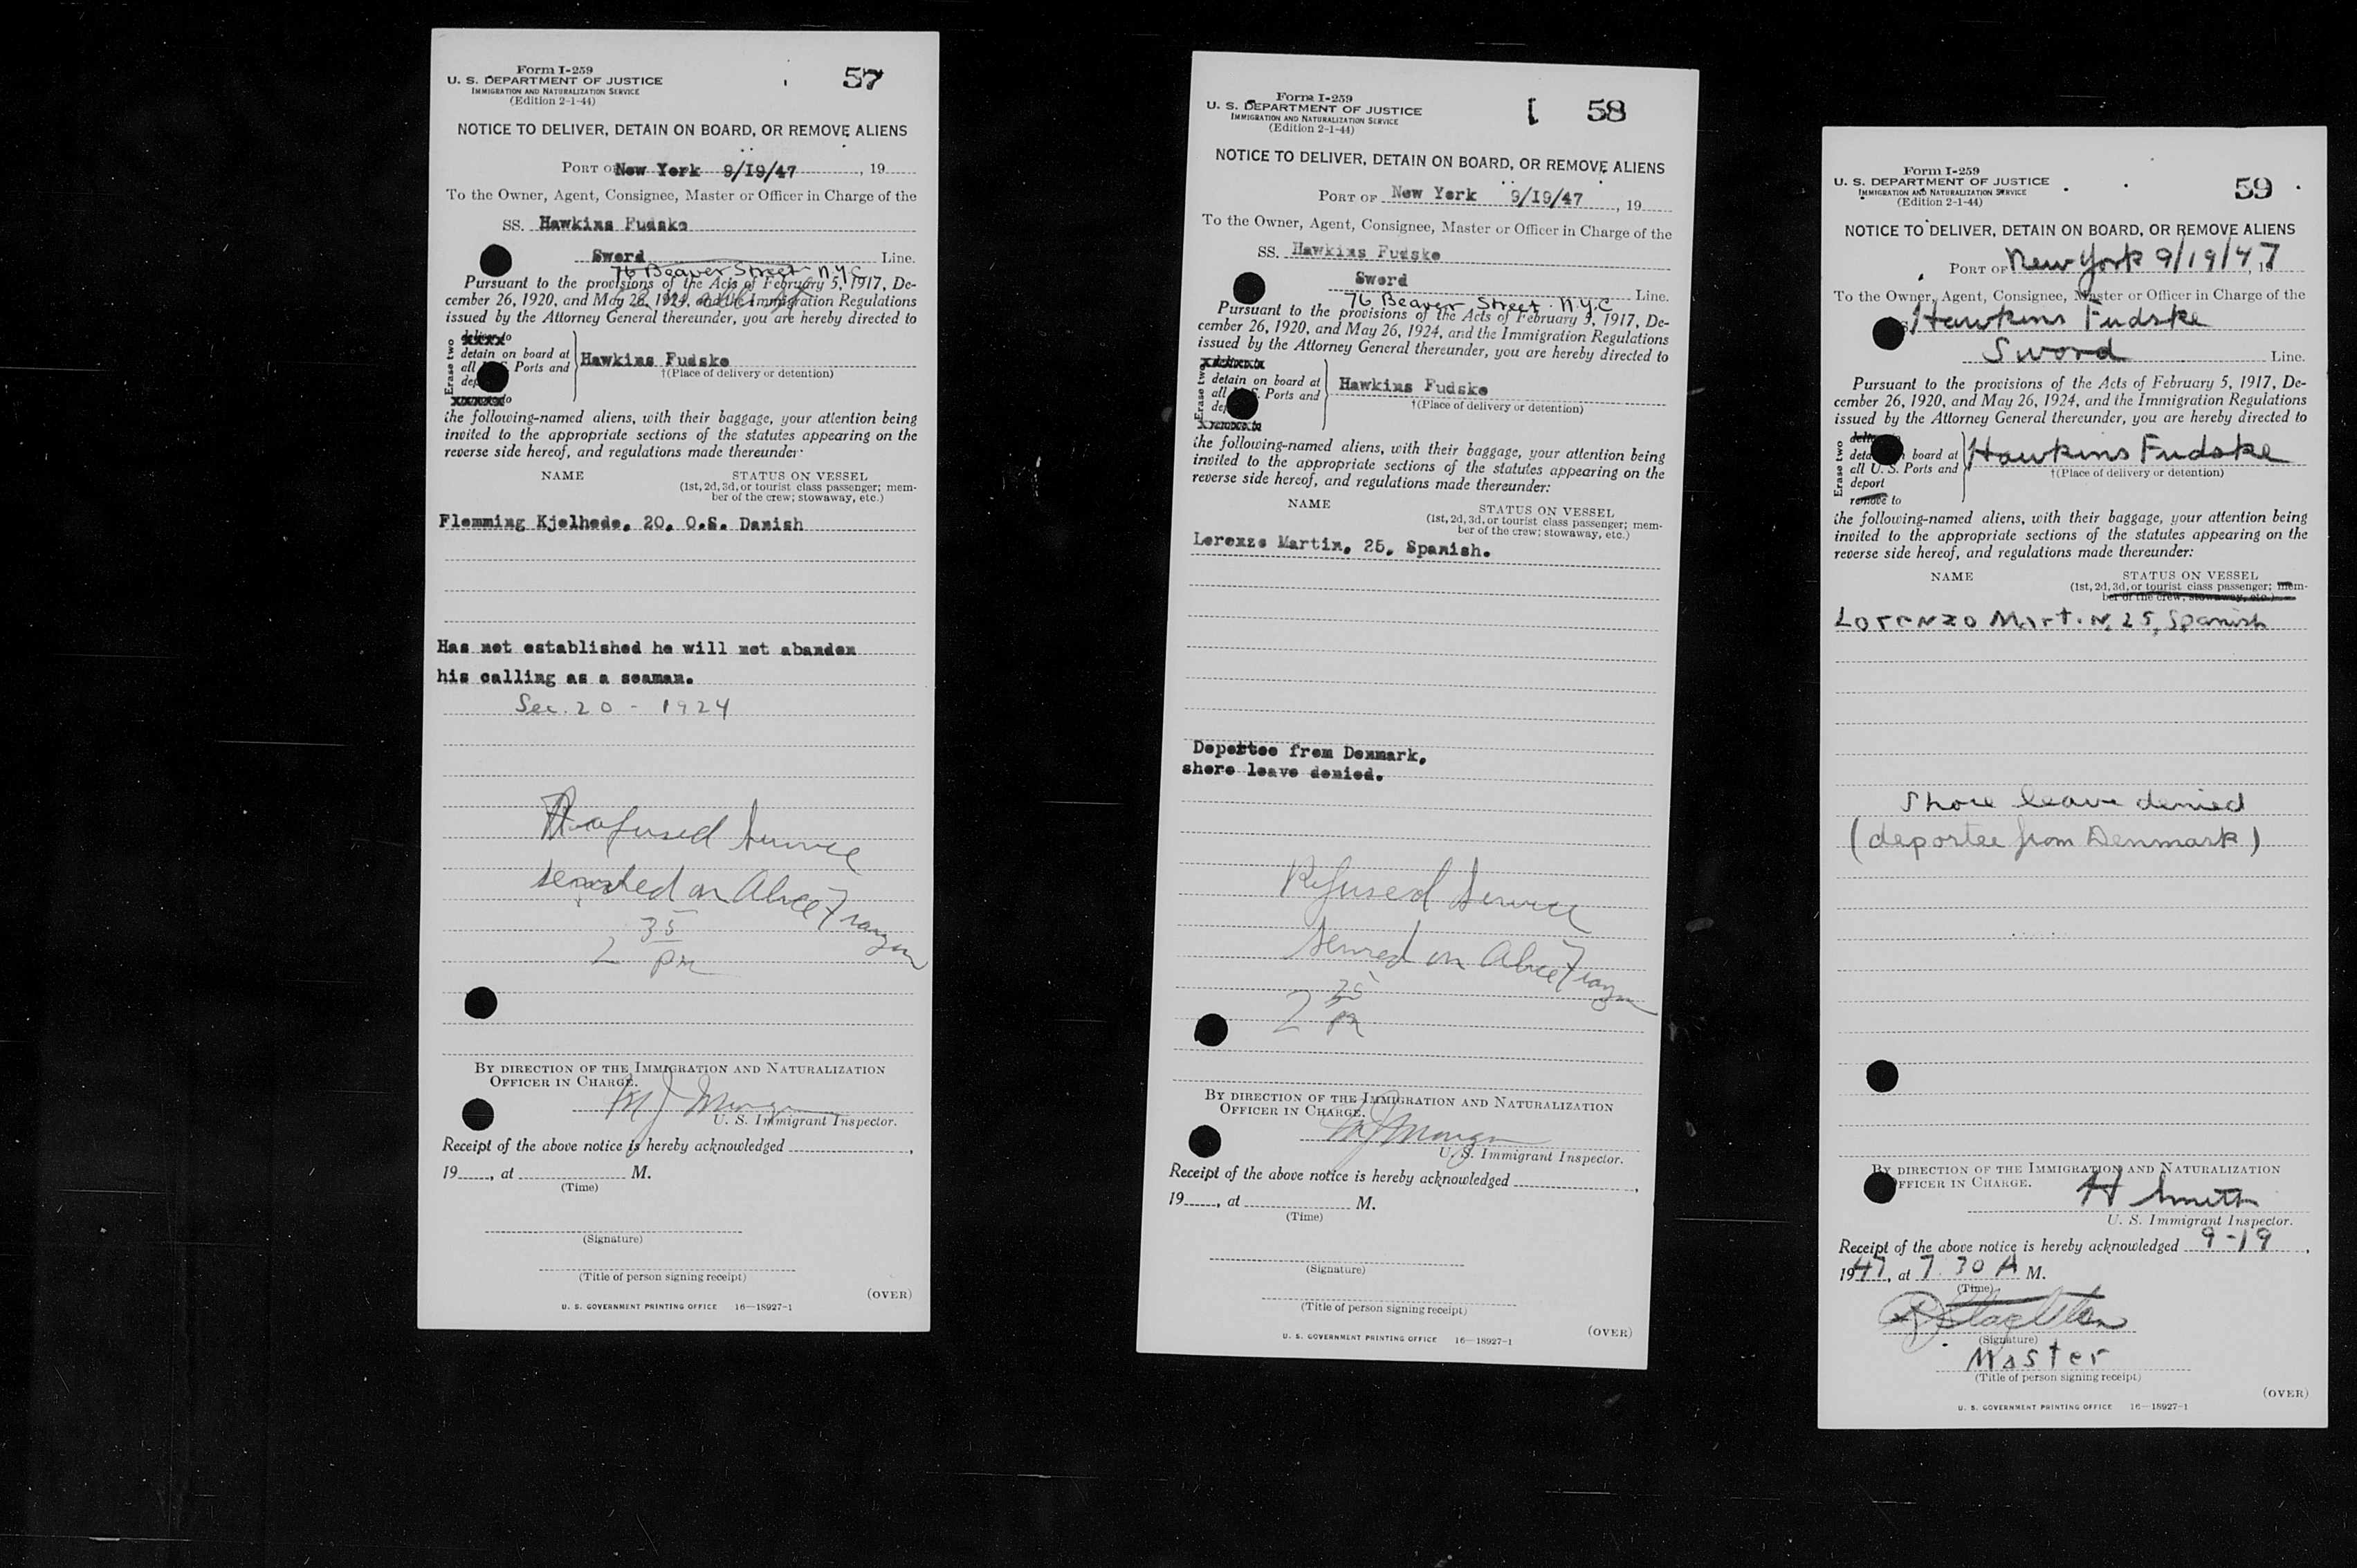 Form I-259
U. S. DEPARTMENT OF JUSTICE
IMMIGRATION AND NATURALIZATION SERVICE
(Edition 2-1-44)
57
NOTICE TO DELIVER, DETAIN ON BOARD, OR REMOVE ALIENS
PORT OF New York 9/I9/47, 19
To the Owner, Agent, Consignee, Master or Officer in Charge of the
SS. Hawkins Fudske
Sword Line.
76 Beaver Street N.Y.C
Pursuant to the provisions of the Acts of February 5, 1917, De-
cember 26, 1920, and May 26, 1924, and the Immigration Regulations
issued by the Attorney General thereunder, you are hereby directed to
Erase two
deliver to
detain on board at
all U. S. Ports and
deport
to
Hawkins Fudske
†(Place of delivery or detention)
the following-named aliens, with their baggage, your attention being
invited to the appropriate sections of the statutes appearing on the
reverse side hereof, and regulations made thereunder:
NAME STATUS ON VESSEL
(1st, 2d, 3d, or tourist class passenger; mem-
ber of the crew; stowaway, etc.)
Flemming Kjelhede, 20, O.S. Danish
Has not established he will not abandon
his calling as a seaman.
Sec. 20 - 1924
Refused Service
served on Alice Franzen
2 35 pm
BY DIRECTION OF THE IMMIGRATION AND NATURALIZATION
OFFICER IN CHARGE.
U. S. Immigrant Inspector.
Receipt of the above notice is hereby acknowledged ,
19 , at M.
(Time)
(Signature)
(Title of person signing receipt)
(OVER)
U. S. GOVERNMENT PRINTING OFFICE 16—18927-1
Form I-259
U. S. DEPARTMENT OF JUSTICE
IMMIGRATION AND NATURALIZATION SERVICE
(Edition 2-1-44)
58
NOTICE TO DELIVER, DETAIN ON BOARD, OR REMOVE ALIENS
PORT OF New York 9/I9/47, 19
To the Owner, Agent, Consignee, Master or Officer in Charge of the
SS. Hawkins Fudske
Sword
Line.
76 Beaver Street N.Y.C
Pursuant to the provisions of the Acts of February 5, 1917, De-
cember 26, 1920, and May 26, 1924, and the Immigration Regulations
issued by the Attorney General thereunder, you are hereby directed to
Erase two
deliver to
detain on board at
all U. S. Ports and
deport
remove to
Hawkins Fudske
†(Place of delivery or detention)
the following-named aliens, with their baggage, your attention being
invited to the appropriate sections of the statutes appearing on the
reverse side hereof, and regulations made thereunder:
NAME STATUS ON VESSEL
(1st, 2d, 3d, or tourist class passenger; mem-
ber of the crew; stowaway, etc.)
Lorenzo Martin, 25, Spanish.
Deportee from Denmark,
shore leave denied.
Refused Service
served on Alice Franzen
2 35 pm
BY DIRECTION OF THE IMMIGRATION AND NATURALIZATION
OFFICER IN CHARGE.
U. S. Immigrant Inspector.
Receipt of the above notice is hereby acknowledged ,
19 , at M.
(Time)
(Signature)
(Title of person signing receipt)
(OVER)
U. S. GOVERNMENT PRINTING OFFICE 16—18927-1
Form I-259
U. S. DEPARTMENT OF JUSTICE
IMMIGRATION AND NATURALIZATION SERVICE
(Edition 2-1-44)
59
NOTICE TO DELIVER, DETAIN ON BOARD, OR REMOVE ALIENS
PORT OF New York 9/19/47, 19
To the Owner, Agent, Consignee, Master or Officer in Charge of the
Hawkins Fudske
Sword Line.
Pursuant to the provisions of the Acts of February 5, 1917, De-
cember 26, 1920, and May 26, 1924, and the Immigration Regulations
issued by the Attorney General thereunder, you are hereby directed to
Erase two
deliver to
detain on board at
all U. S. Ports and
deport
remove to
Hawkins Fudske
†(Place of delivery or detention)
the following-named aliens, with their baggage, your attention being
invited to the appropriate sections of the statutes appearing on the
reverse side hereof, and regulations made thereunder:
NAME STATUS ON VESSEL
(1st, 2d, 3d, or tourist class passenger; mem-
ber of the crew; stowaway, etc.)
Lorenzo Martin, 25, Spanish
Shore leave denied
(deportee from Denmark)
BY DIRECTION OF THE IMMIGRATION AND NATURALIZATION
OFFICER IN CHARGE.
H Smith
U. S. Immigrant Inspector.
Receipt of the above notice is hereby acknowledged 9-19,
1947, at 7 30 A M.
(Time)
(Signature)
Master
(Title of person signing receipt)
(OVER)
U. S. GOVERNMENT PRINTING OFFICE 16—18927-1